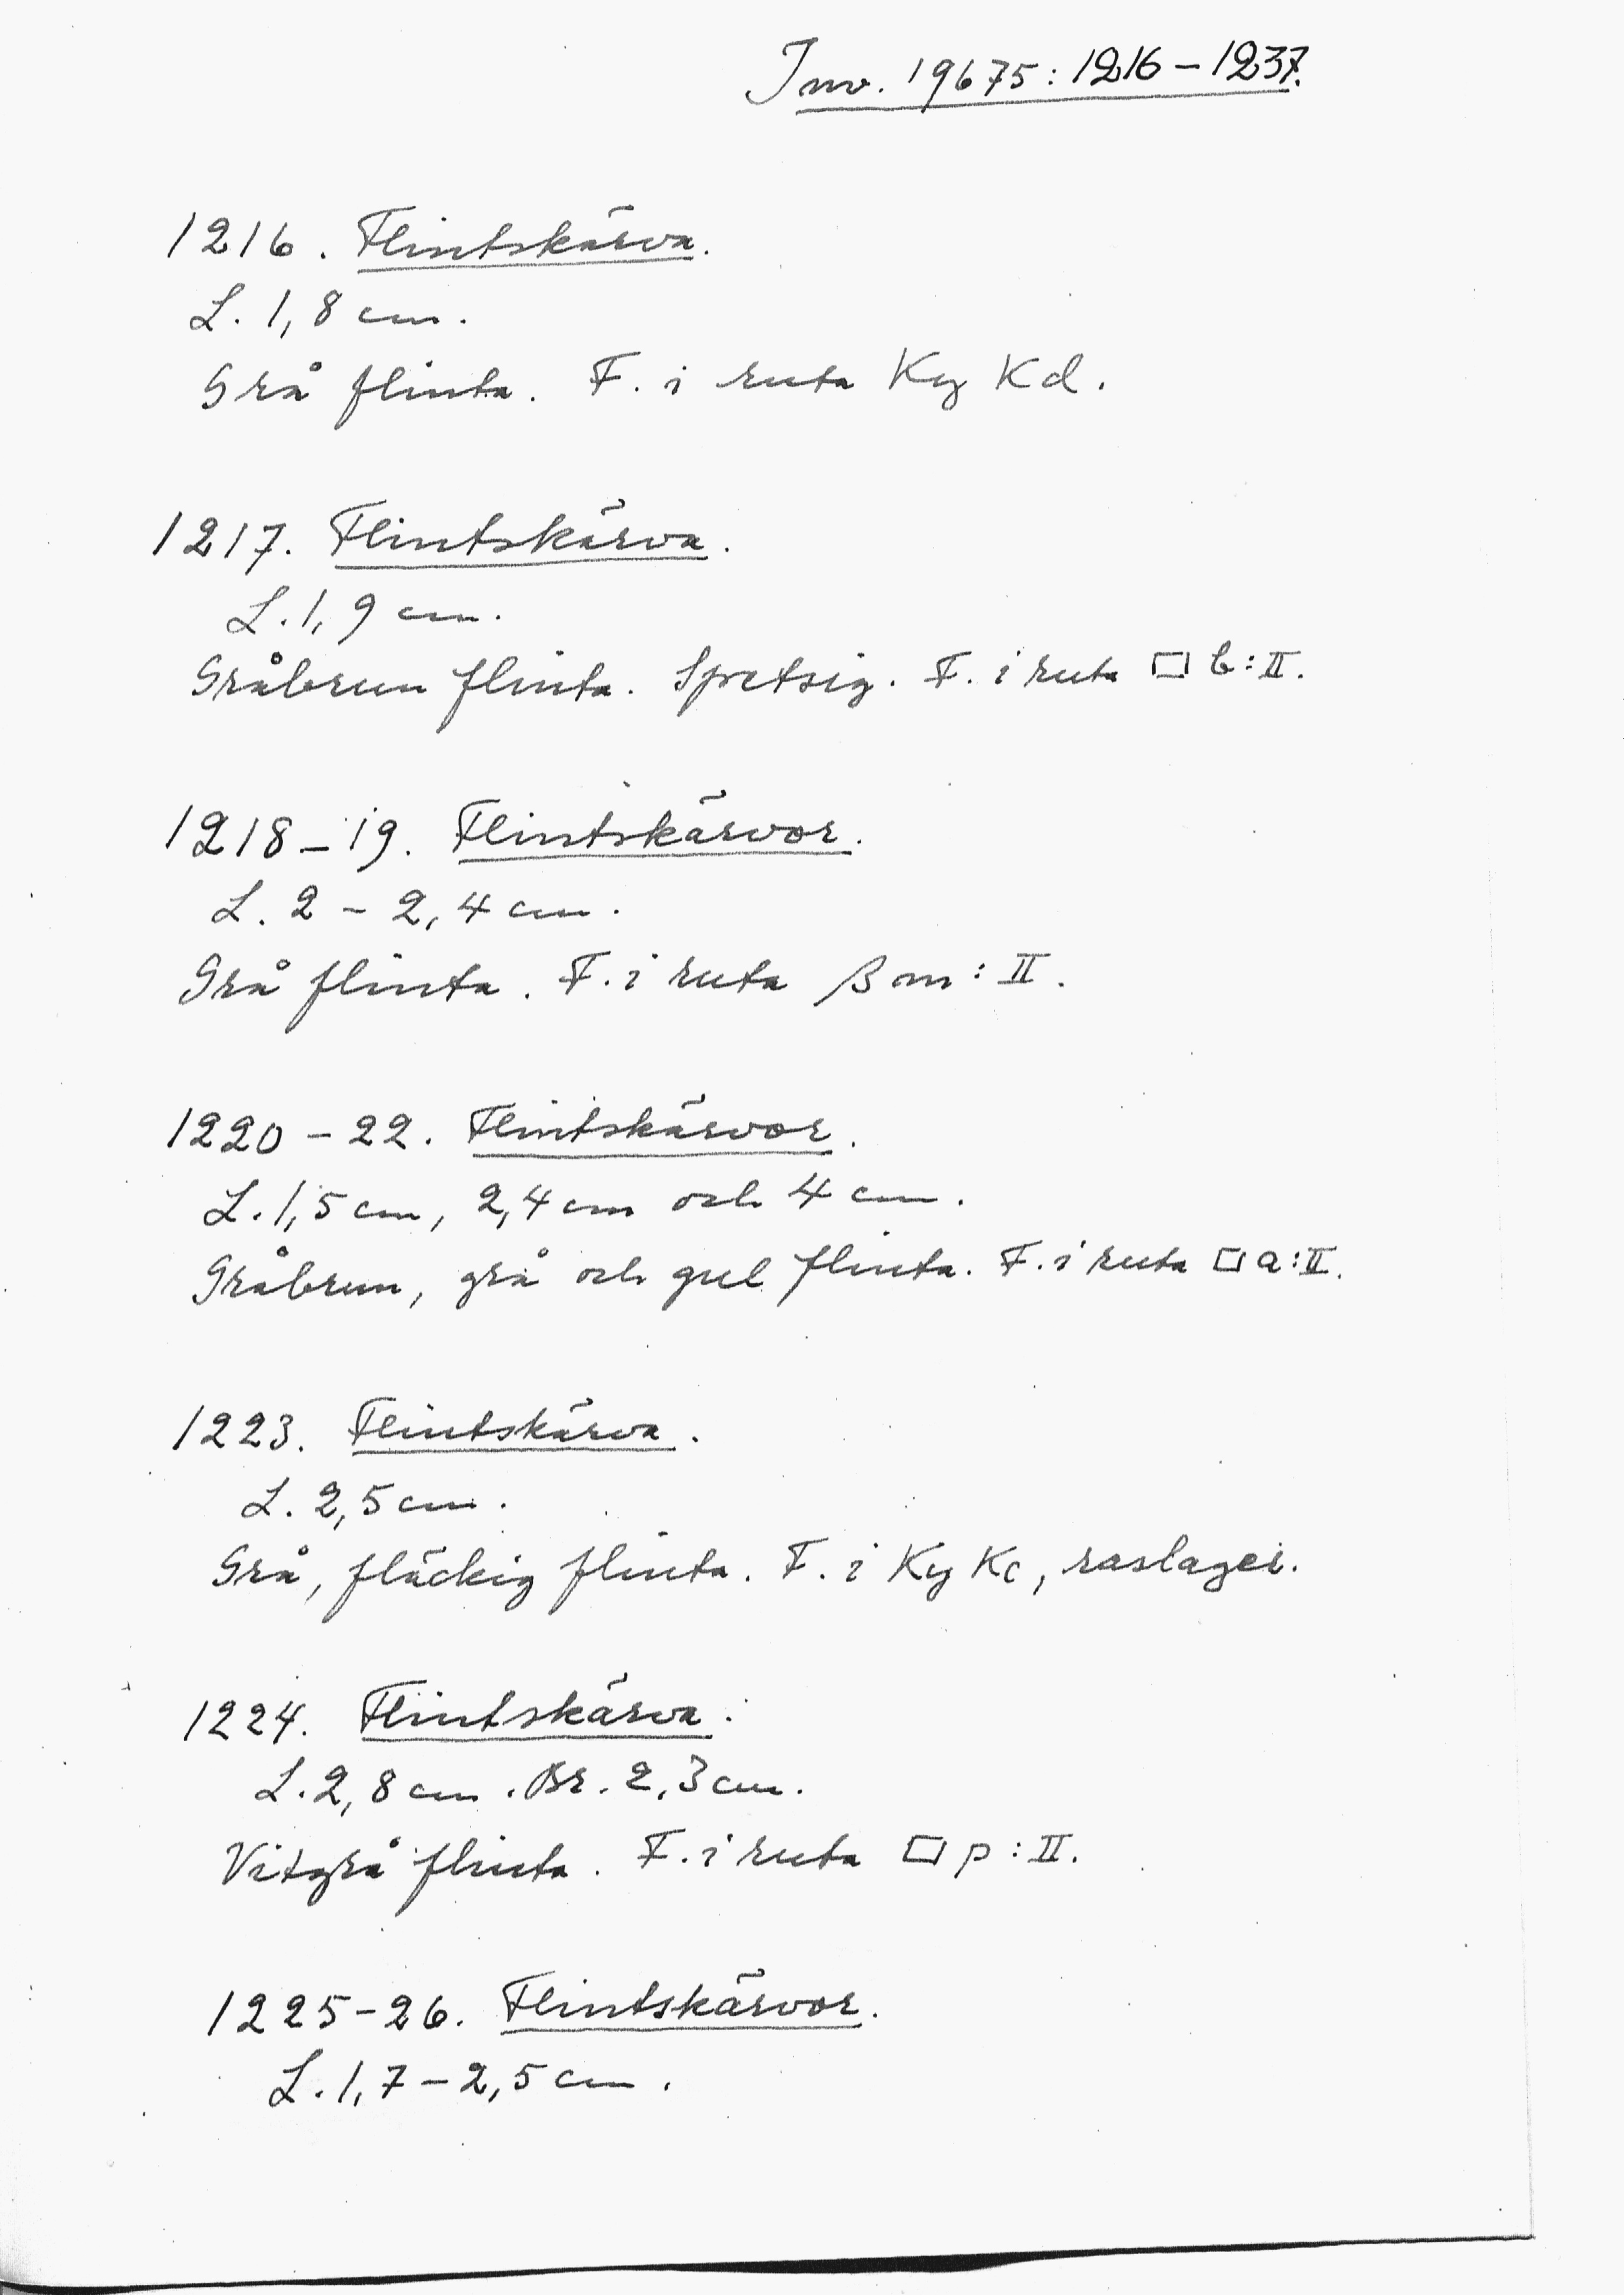 Inv. 19675:1216–1237.
1216. Flintskärva.
L. 1,8 cm.
Grå flinta. F. i ruta Ky Kd.
1217. Flintskärva.
L. 1,9 cm.
Gråbrun flinta. Spetsig. F. i ruta □ b:II.
1218–19. Flintskärvor.
L. 2 – 2,4 cm.
Grå flinta. F. i ruta β m:II.
1220–22. Flintskärvor.
L. 1,5 cm, 2,4 cm och 4 cm.
Gråbrun, grå och gul flinta. F. i ruta □ a:II.
1223. Flintskärva.
L. 2,5 cm.
Grå, fläckig flinta. F. i Ky Kc, raslager.
1224. Flintskärva.
L. 2,8 cm. Br. 2,3 cm.
Vitgrå flinta. F. i ruta □ p:II.
1225–26. Flintskärvor.
L. 1,7 – 2,5 cm.